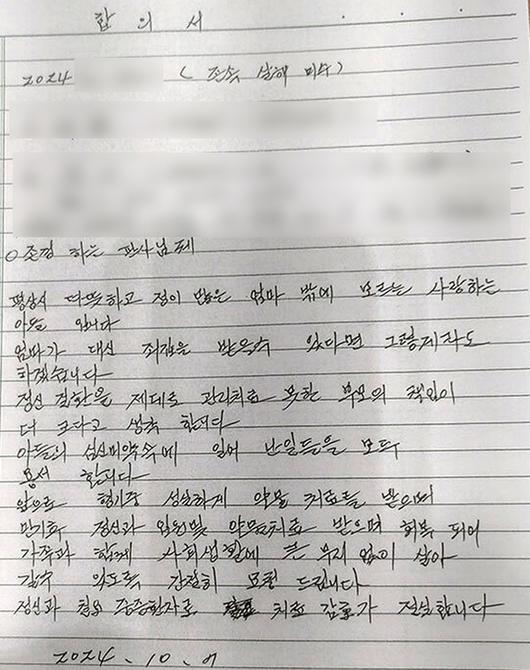 합 의 서
2024 ( 존속 살해 미수 )
○ 존경 하는 판사님께
평상시 따뜻하고 정이 많은 엄마 밖에 모르는 사랑하는
아들 입니다
엄마가 대신 죄값을 받을수 있다면 그렇게라도
하겠습니다
정신 질환을 제대로 관리치료 못한 부모의 책임이
더 크다고 생각 합니다
아들의 심신미약속에 일어난일들을 모두
용서 합니다
앞으로 형기장 성실하게 약물 치료를 받으며
만기후 정신과 입원및 약물치료 받으며 회복 되어
가족과 함께 사회생활에 큰 무리 없이 살아
갈수 있도록 간절히 요청 드립니다
정신과 질환 중증환자로 치료 감호가 절실합니다
2024. 10.